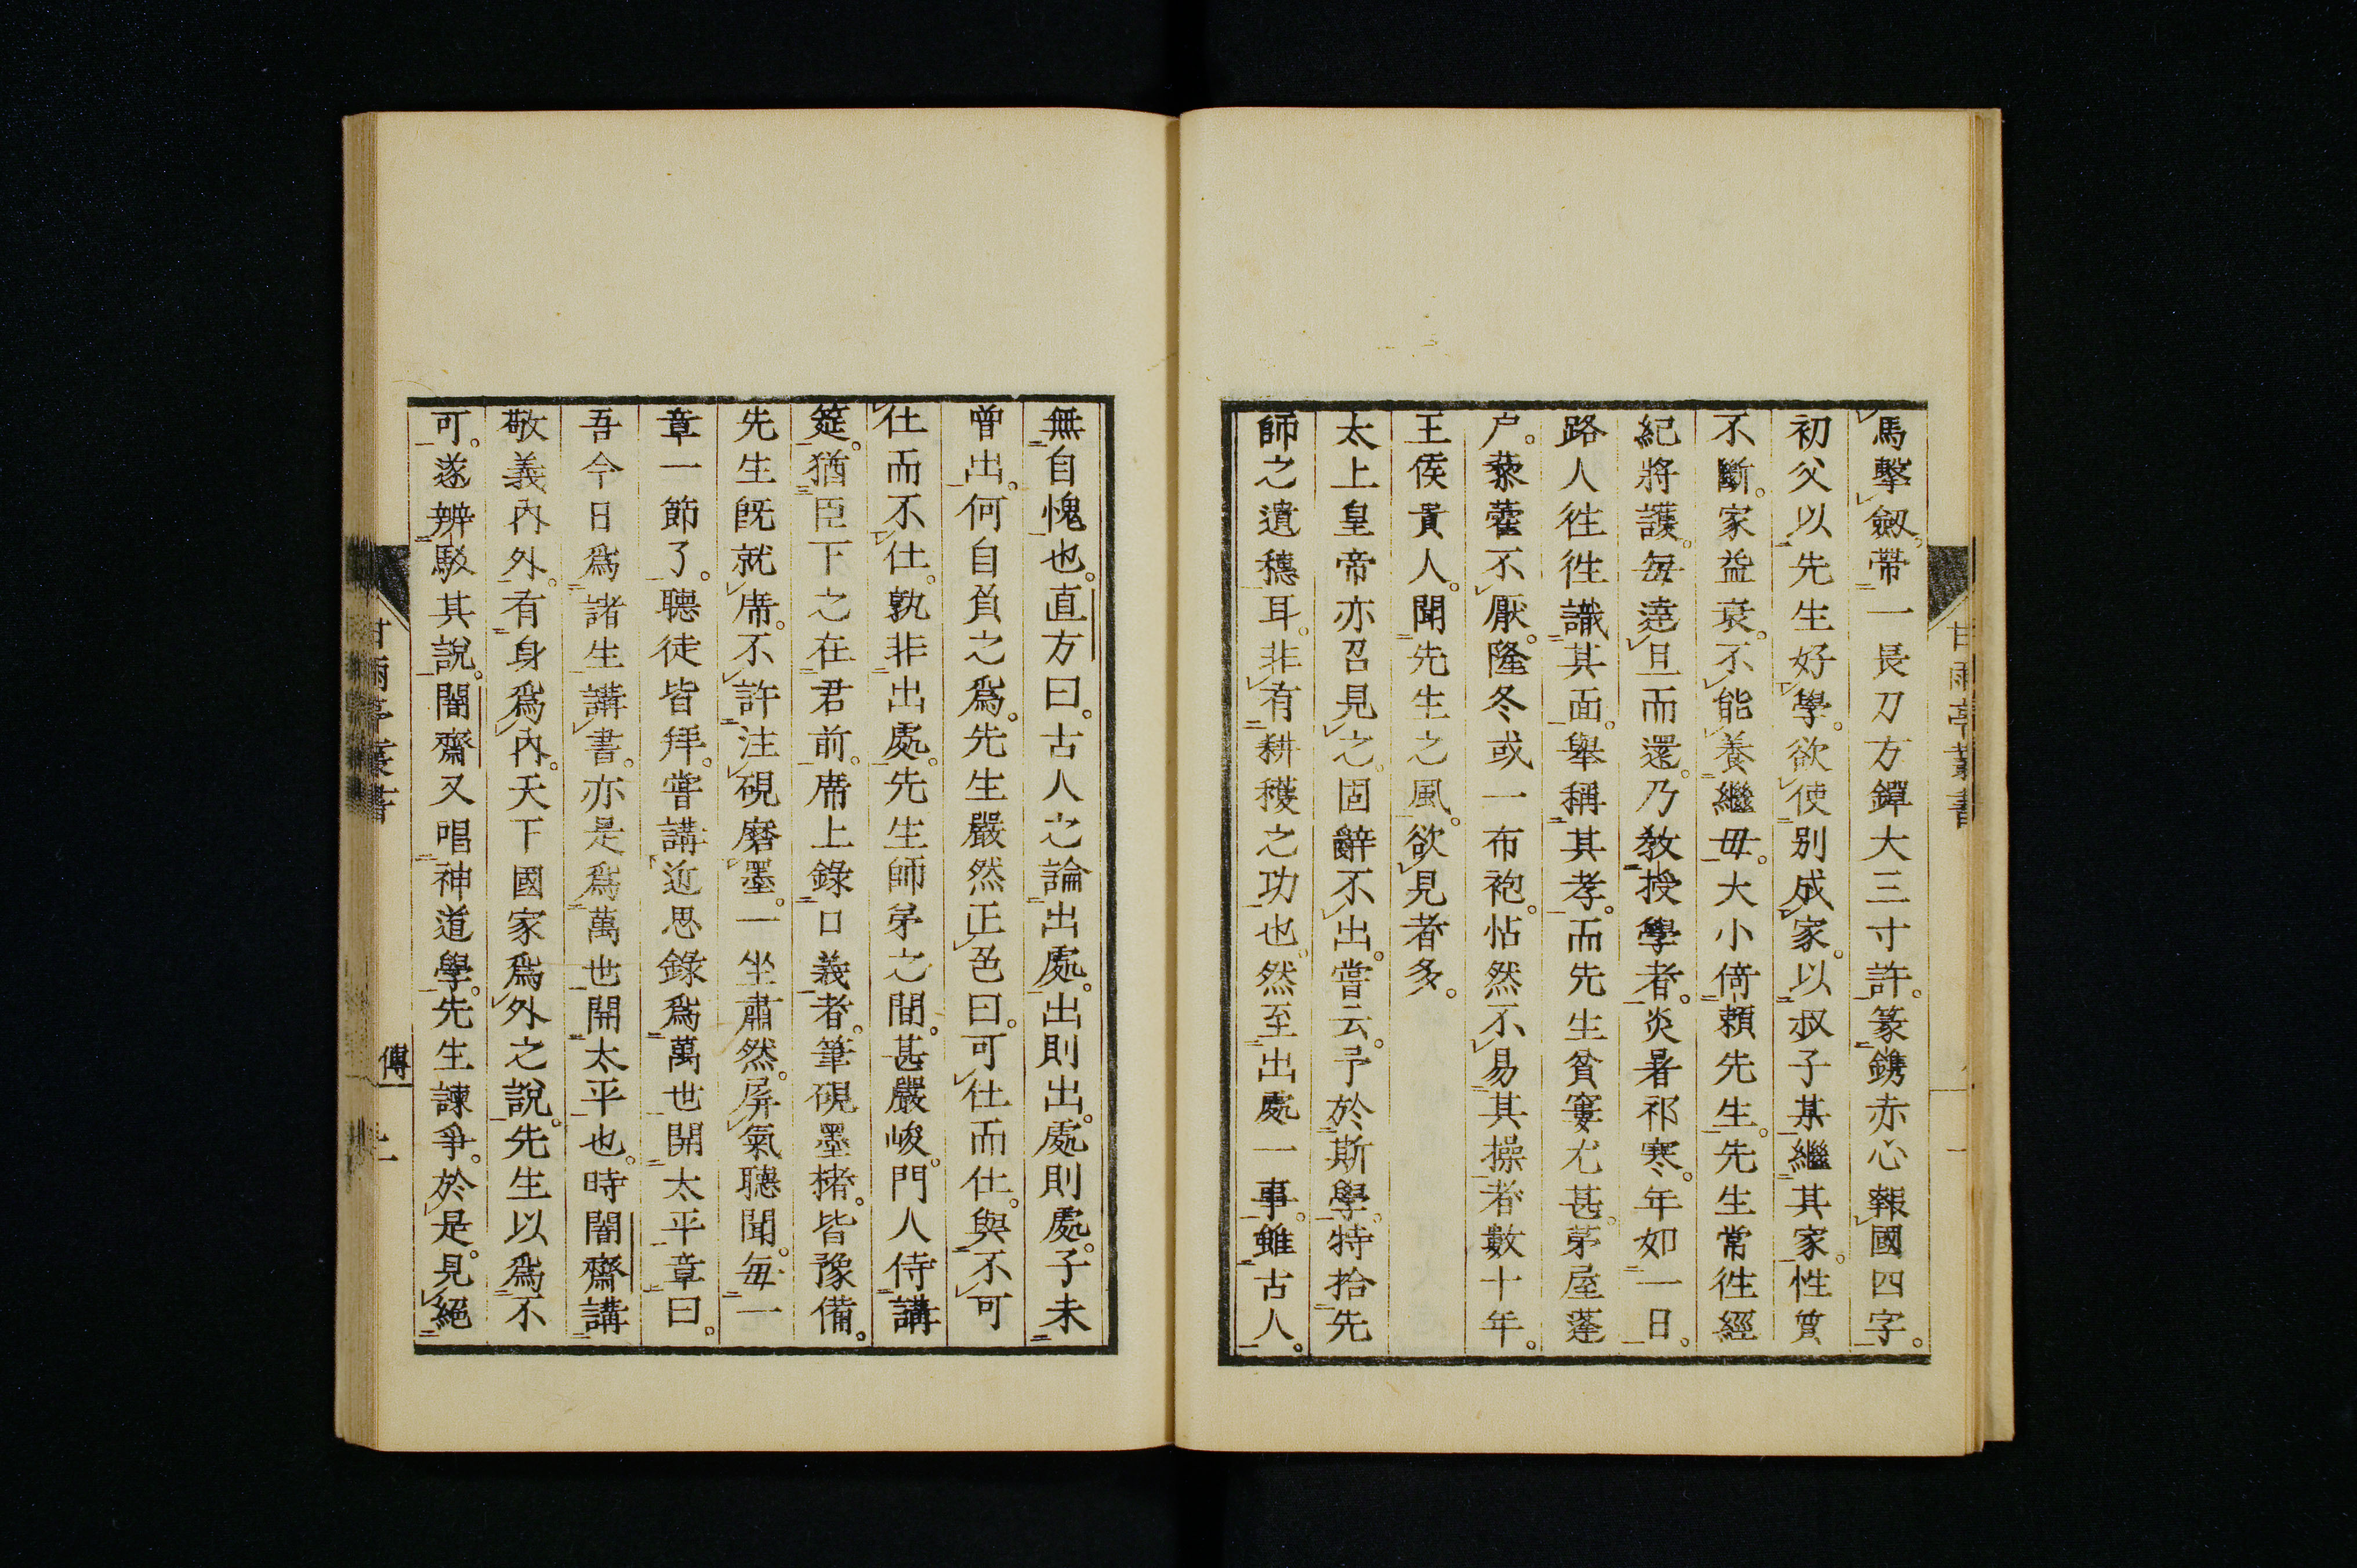 馬擊劔。帶一長刀方鐔大三寸許。篆鐫赤心報國四字。
初父以先生好學。欲使别成家。以叔子某繼其家。性質
不斷。家益衰。不能養繼毋。大小倚頼先生。先生常徃經
紀將護。毎達旦而還。乃敎授學者。炎暑祁寒。年如一日。
路人徃徃識其面。舉稱其孝。而先生貧窶尤甚。茅屋蓬
户。藜藿不厭。隆冬或一布袍。怗然不易其操者數十年。
王侯貴人。聞先生之風。欲見者多。
太上皇帝亦召見之。固辭不出。嘗云。予於斯學。特拾先
師之遺穗耳。非有耕穫之功也。然至出處一事。雖古人。
甘雨亭叢書
一
無自愧也。直方曰。古人之論出處。出則出。處則處。子未
曾出。何自負之爲。先生嚴然正色曰。可仕而仕。與不可
仕而不仕。孰非出處。先生師弟之間。甚嚴峻。門人侍講
筵。猶臣下之在君前。席上錄口義者。筆硯墨楮。皆豫備。
先生旣就席。不許注硯磨墨。一坐肅然。屏氣聽聞。毎一
章一節了。聽徒皆拜。嘗講近思錄爲萬世開太平章曰。
吾今日爲諸生講書。亦是爲萬世開太平也。時闇齋講
敬義内外。有身爲内。天下國家爲外之說。先生以爲不
可。遂辨駁其說。闇齋又唱神道學。先生諫爭。於是。見絕
甘雨亭叢書
傳